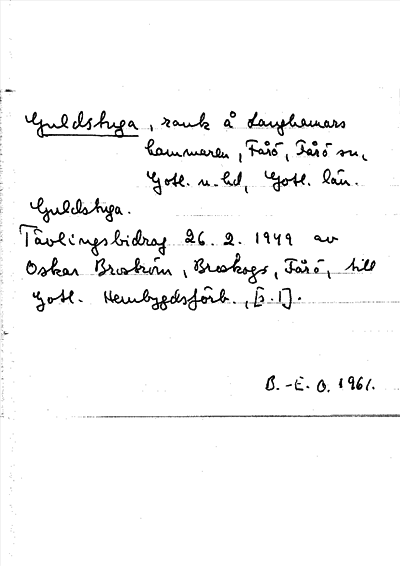 Guldstuga, rauk å Langhamars
hammaren, Fårö, Fårö sn,
Gotl. n. hd, Gotl. län.
Guldstuga.
Tävlingsbidrag 26. 2. 1949 av
Oskar Broström, Broskogs, Fårö, till
Gotl. Hembygdsförb., [s. 1].
B.-E. O. 1961.